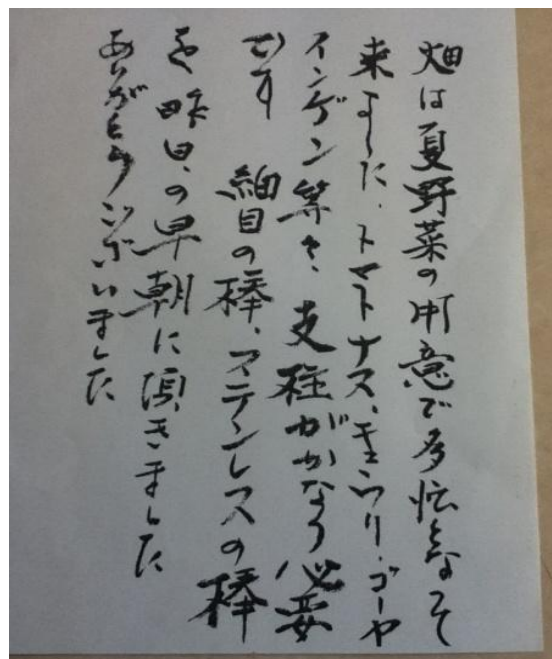 畑は夏野菜の用意で多忙となって
来ました、トマトナス、きうり・ゴーヤ
インゲン等々、支柱がかなり必要
です　細目の棒、ステンレスの棒
を昨日の早朝に頂きました
ありがとうございました